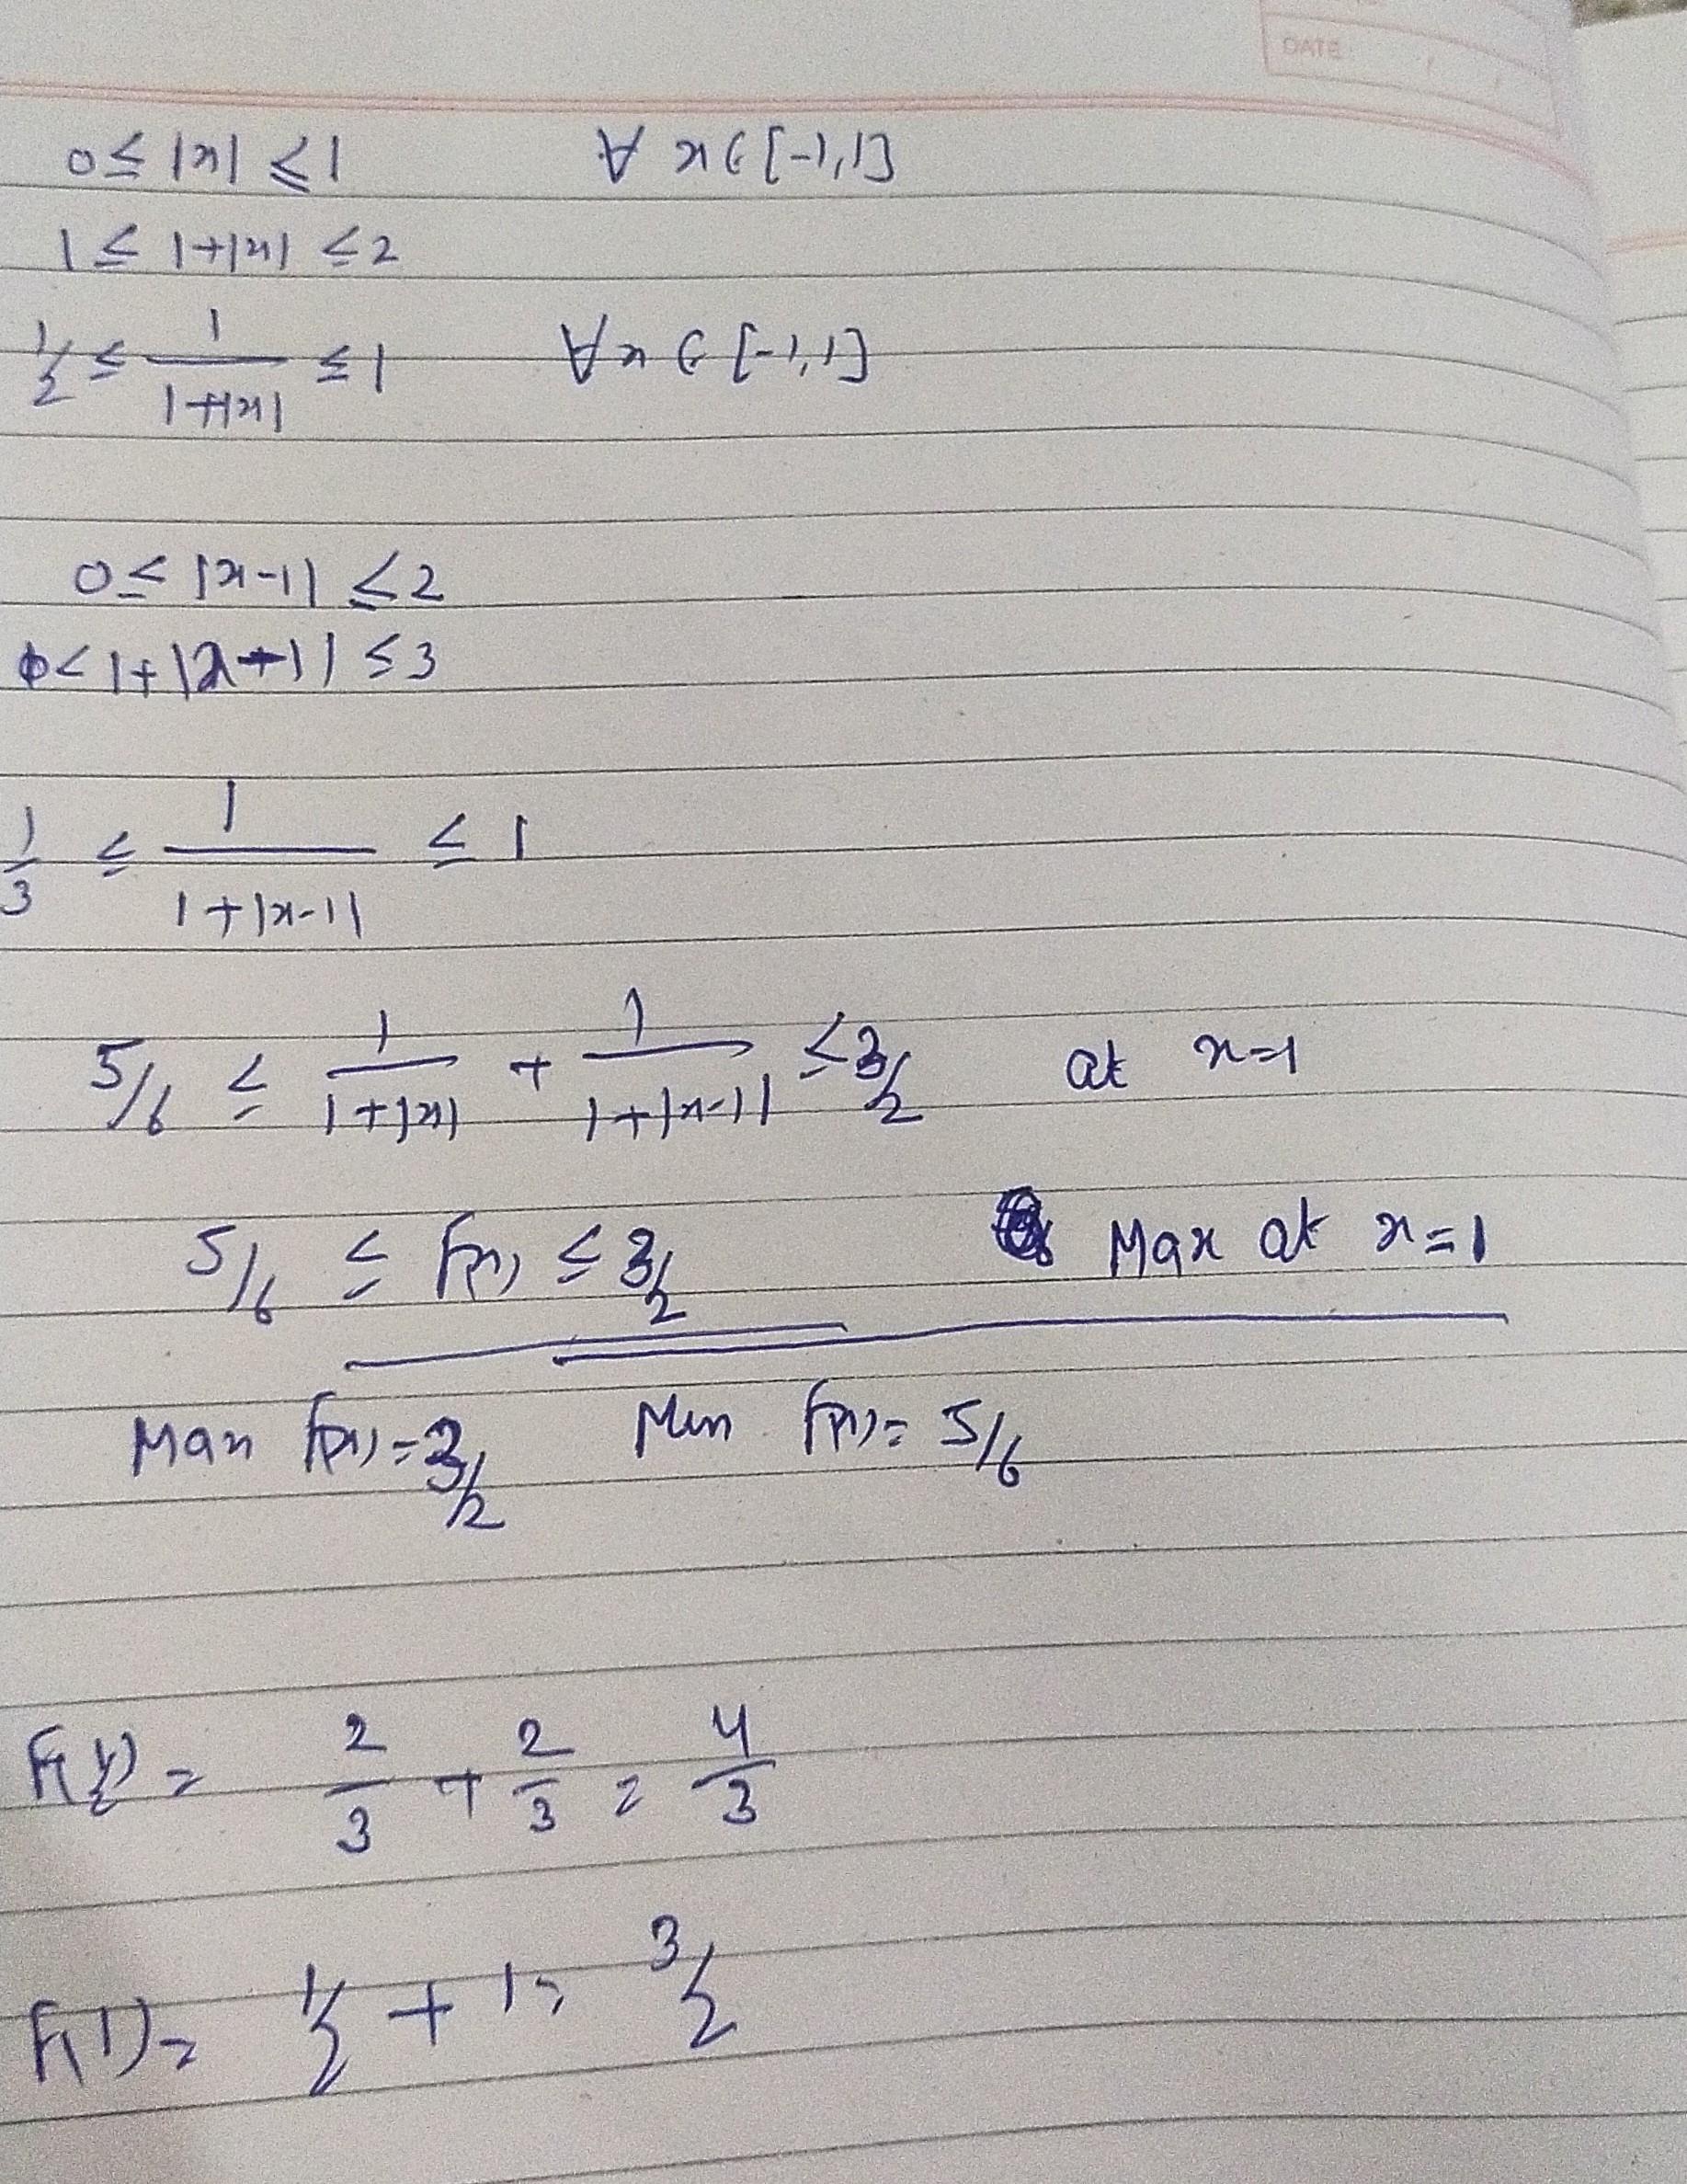 DATE
0 ≤ |x| ≤ 1 ∀ x ∈ [-1,1]
1 ≤ 1+|x| ≤ 2
1/2 ≤ 1/(1+|x|) ≤ 1 ∀ x ∈ [-1,1]
0 ≤ |x-1| ≤ 2
1 < 1+|x-1| ≤ 3
1/3 ≤ 1/(1+|x-1|) ≤ 1
5/6 ≤ 1/(1+|x|) + 1/(1+|x-1|) ≤ 3/2 at x=1
5/6 ≤ f(x) ≤ 3/2 Max at x=1
Max f(x) = 3/2 Min f(x) = 5/6
f(1/2) = 2/3 + 2/3 = 4/3
f(1) = 1/2 + 1 = 3/2